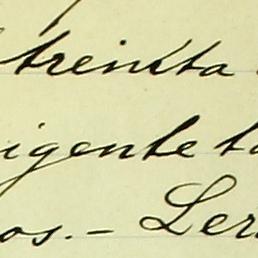 treinta
igente ta
os. – Ler